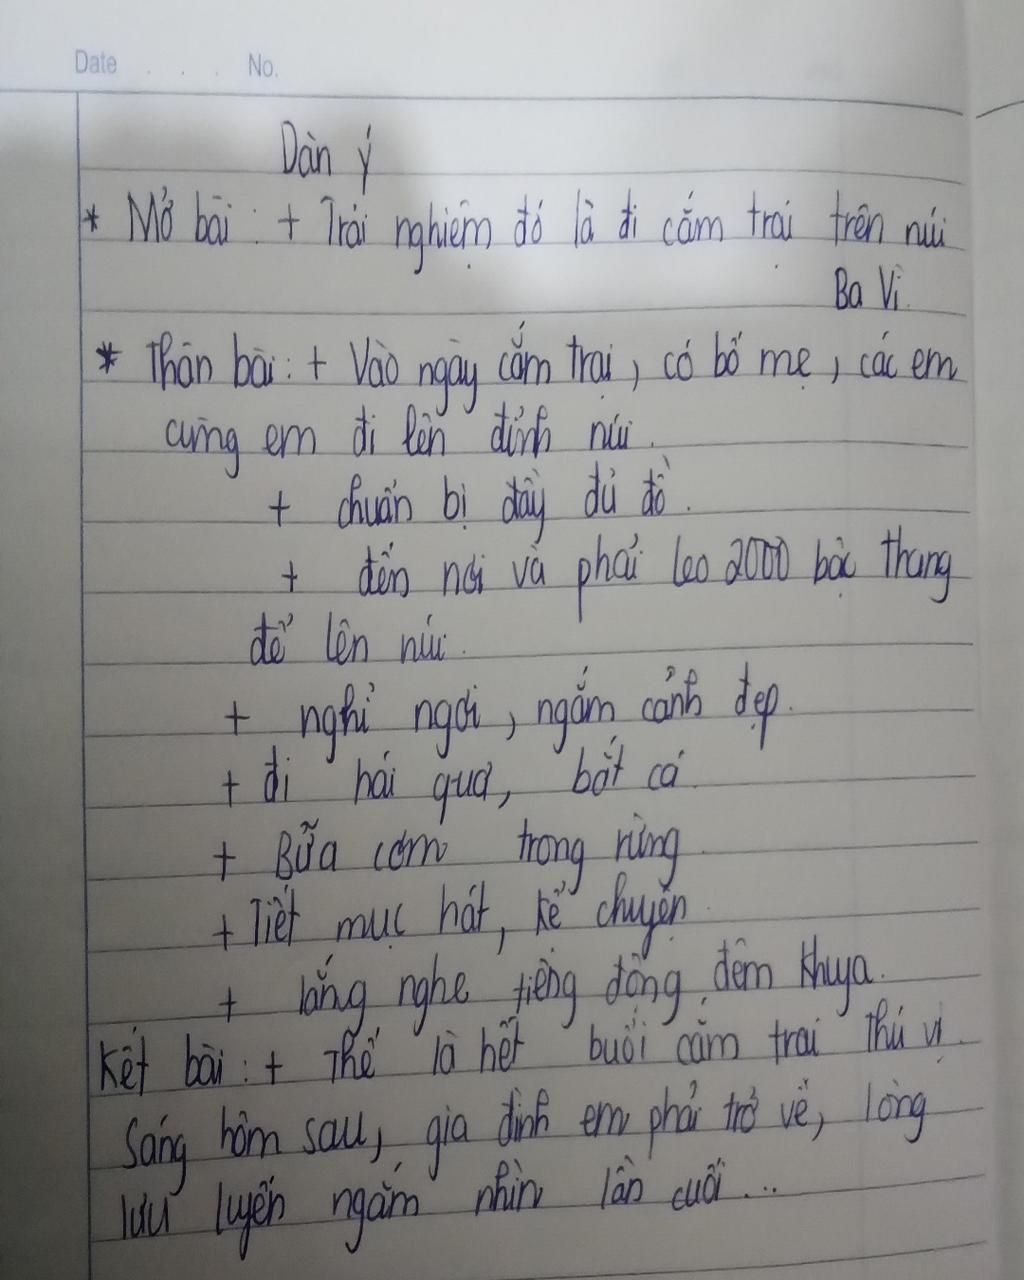 Date . . . No.
Dàn ý
* Mở bài : + Trải nghiệm đó là đi cắm trại trên núi
Ba Vì.
* Thân bài : + Vào ngày cắm trại, có bố mẹ, các em
cùng em đi lên đỉnh núi.
+ chuẩn bị đầy đủ đồ.
+ đến nơi và phải leo 2000 bậc thang
để lên núi.
+ nghỉ ngơi, ngắm cảnh đẹp.
+ đi hái quả, bắt cá
+ Bữa cơm trong rừng.
+ Tiết mục hát, kể chuyện.
+ lắng nghe tiếng động đêm khuya.
Kết bài : + Thế là hết buổi cắm trại thú vị.
Sáng hôm sau, gia đình em phải trở về, lòng
lưu luyến ngắm nhìn lần cuối...